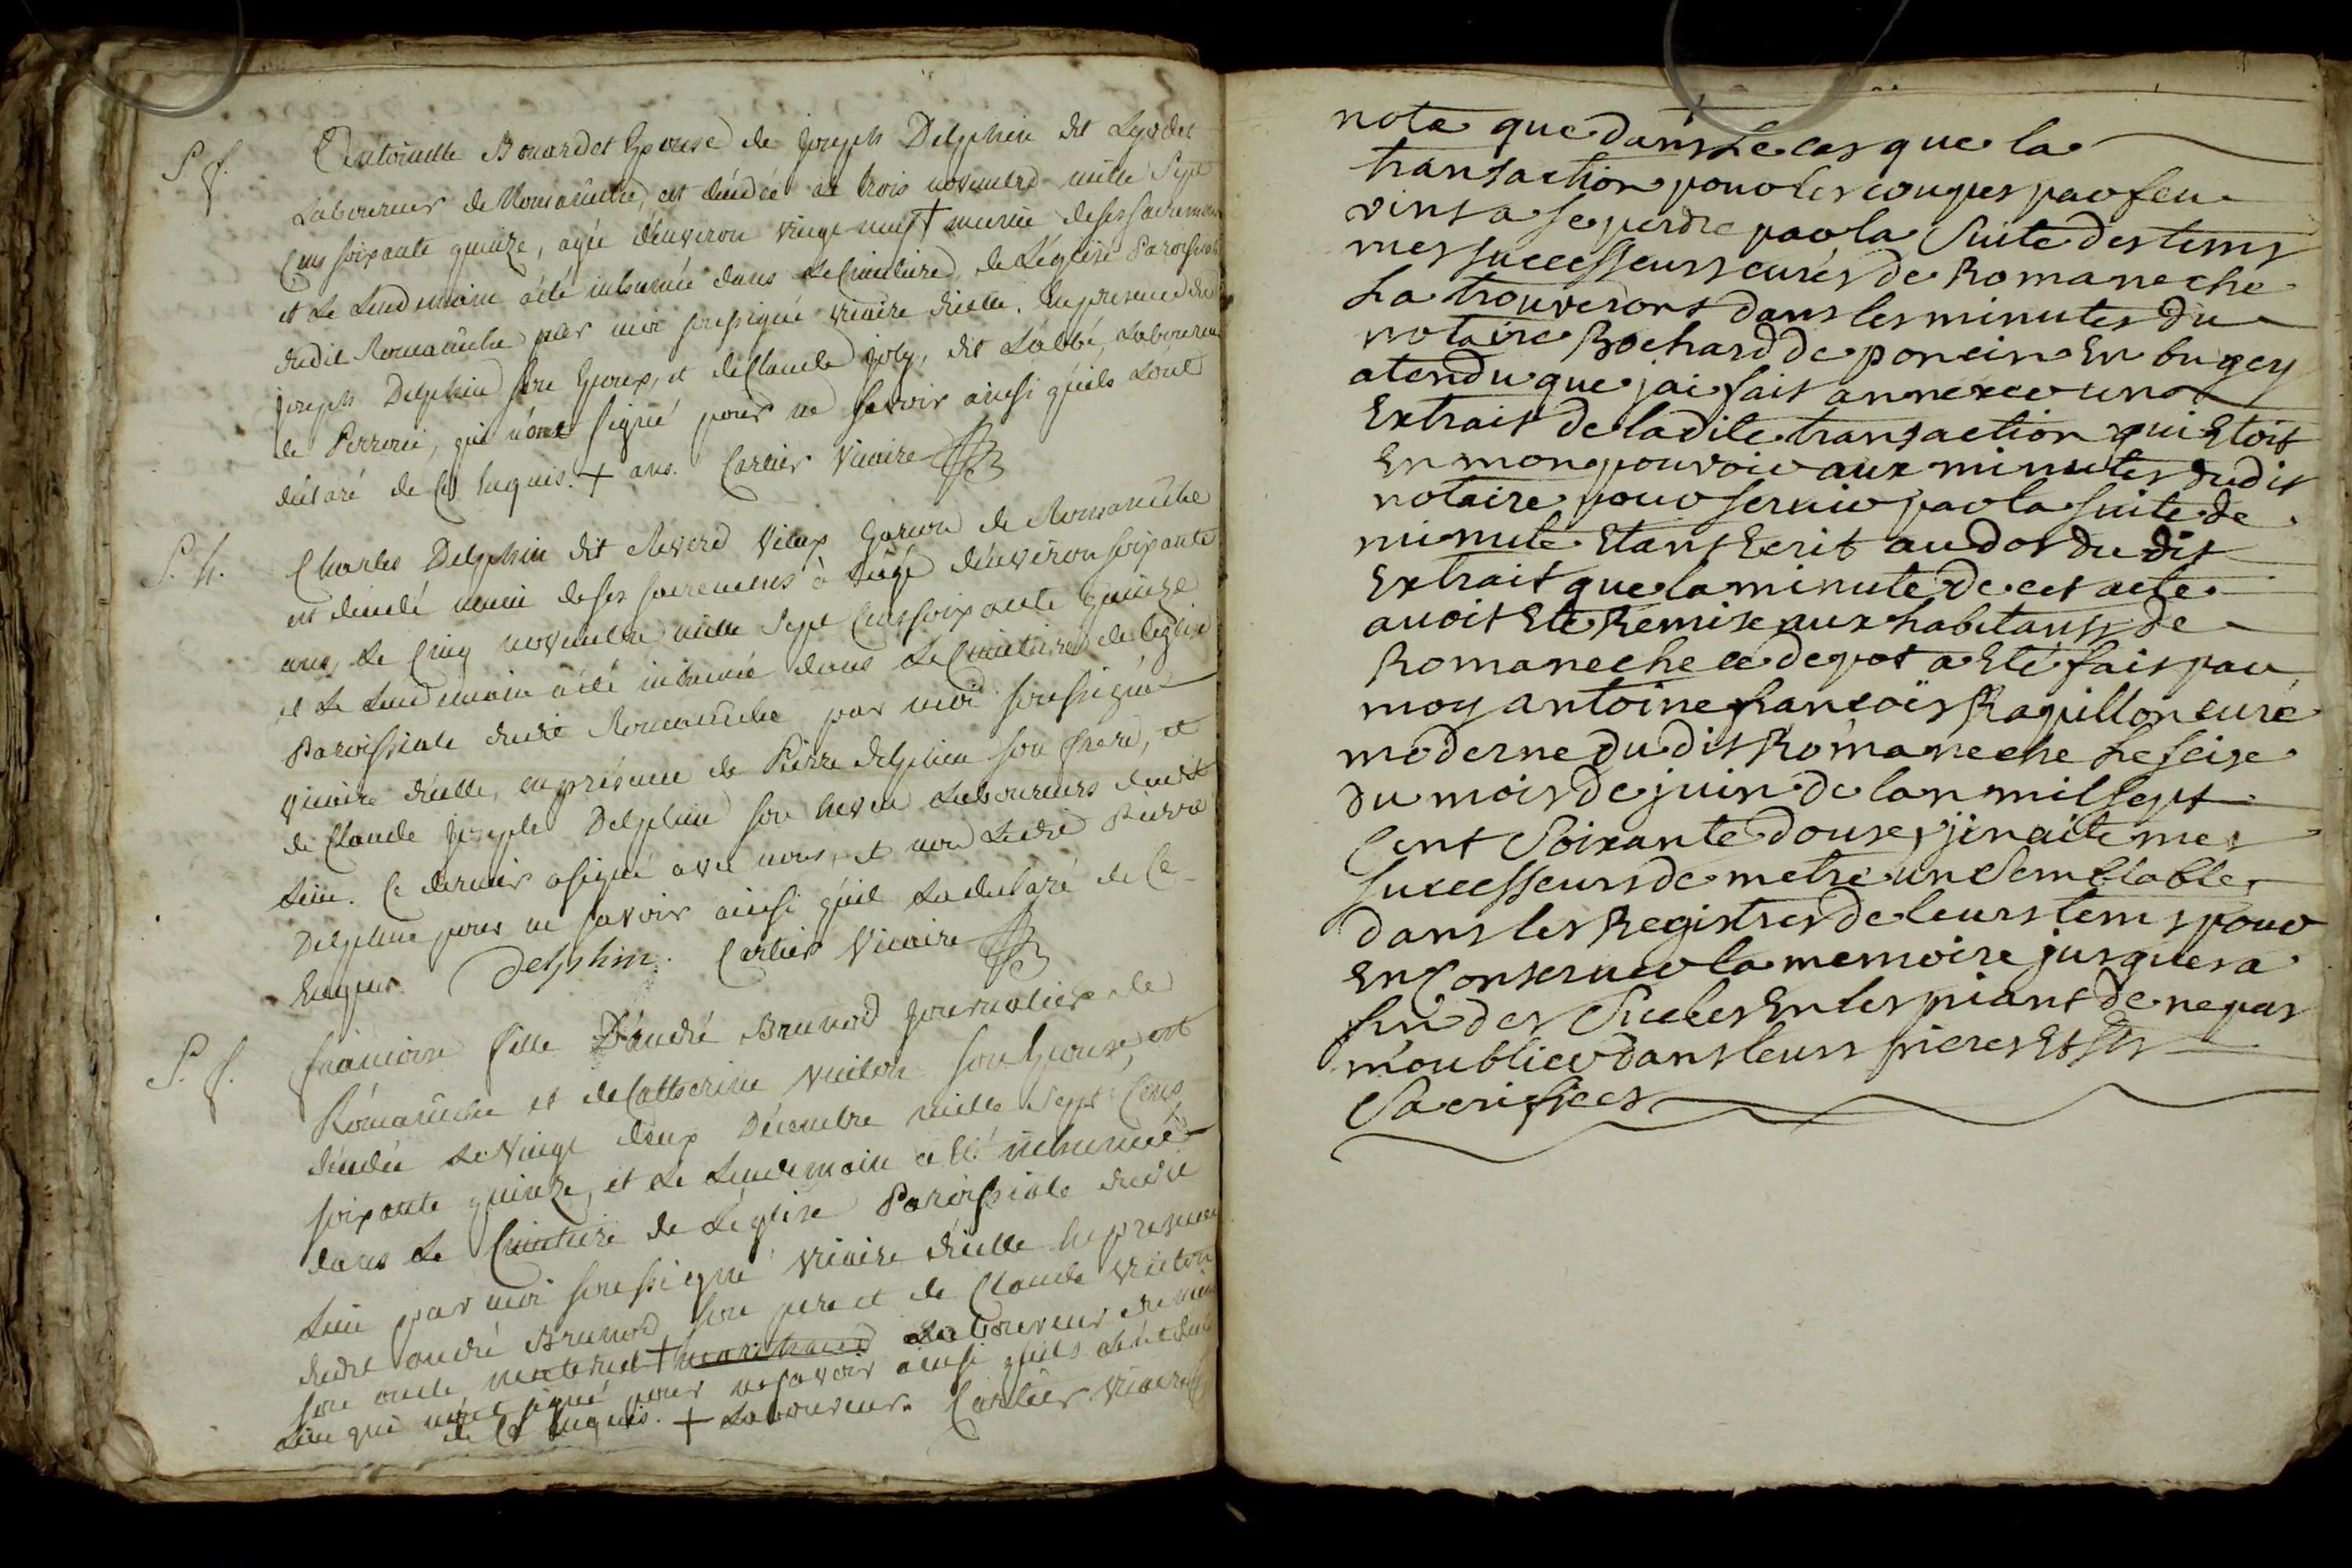 S. f.
Antoinette Bouardet Epouse de Joseph Delphin dit
Laboureur de Romanêche, est décédée le trois novembre mille Sept
Cens soixante quinze, agée d'environ vingt neuf + munie de ses sacremens
et le Lendemain a été inhumée dans le Cimetiere de L'église Paroissiale
dudit Romanêche par moi soussigné vicaire d'icelle. En presence dud
Joseph Delphin son Epoux, et de Claude joly, dit L'abbé, Laboureur
de, qui n'ont signé pour ne savoir ainsi qu'ils L'ont
déclaré de Ce Enquis. + ans. Carlier Vicaire
S. h.
Charles Delphin dit Reverd vieux Garcon de Romanêche
est décédé muni de ses sacremens à L'âge d'environ soixante
ans, Le Cinq novembre mille Sept Cens soixante quinze
et Le Lendemain a été inhumé dans Le Cimetiere de L'église
Paroissiale dudit Romanêche par moi soussigné
vicaire d'icelle, en présence de Pierre Delphin son frere, et
de Claude Joseph Delphin son neveu Laboureurs dudit
Lieu. Ce dernier a signé avec nous, et non Ledit Pierre
Delphin pour ne savoir ainsi qu'il L'a déclaré de Ce
Enquis. Delphin. Carlier Vicaire
S. f.
francoise fille D'andré Brunod Journalier de
Romanêche et de Catherine vuiton son Epouse, est
décédée Le vingt deux Décembre mille Sept Cens
soixante quinze, et Le Lendemain a été inhumée
dans Le Cimetiere de L'église Paroissiale dudit
Lieu par moi soussigné vicaire d'icelle En presence
dudit andré Brunod son pere et de Claude vuiton
son oncle maternel + Laboureur du même
Lieu qui n'ont signé pour ne savoir ainsi qu'ils
de Ce Enquis. + Laboureur. Carlier vicaire
note que dans Le cas que la
transaction pour les coupes par feu
vint a se perdre par la Suite des tems
mes successeurs curés de Romaneche
La trouveront dans les minutes du
notaire Bochard de poncin En bugey
atendu que jai fait annexer un
Extrait de la dite transaction qui Etoit
En mon pouvoir aux minutes dudit
notaire pour servir par la suite de
minute Etant Ecrit au dos du dit
Extrait que la minute de cet acte
avoit Ete Remise aux habitants de
Romaneche ce depot a Eté fait par
moy antoine francois Raquillon curé
moderne du dit Romaneche Le seize
du mois de juin de lan mil sept
Cent Soixante douse, jinvite mes
successeurs de metre un Semblable
dans les Registres de leurs tems pour
En Conserver la memoire jusques a
fin des Siecles En les priant de ne pas
m'oublier dans leurs prieres Et Sts
Sacrifices